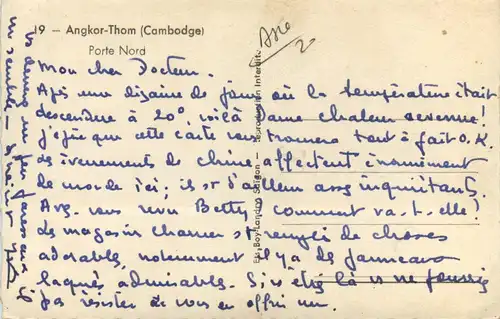 19 — Angkor-Thom (Cambodge)
Porte Nord
Asie
Mon cher Docteur.
Après une dizaine de jours où la température était
descendue à 20°, voilà chaleur revenue!
j'espère que cette carte vous trouvera tout à fait O.K.
les évenements de Chine affectent énormément
le monde ici; ils st d'ailleurs assez inquiétants.
Avez vous revu Betty, comment va-t-elle!
les magasins st remplis de choses
adorables, notemment il y a des panneaux
laqués admirables. Si v. étiez là
pas résister de vous en offrir un.
Ets Boy-Landry, Saigon — Reproduction Interdite